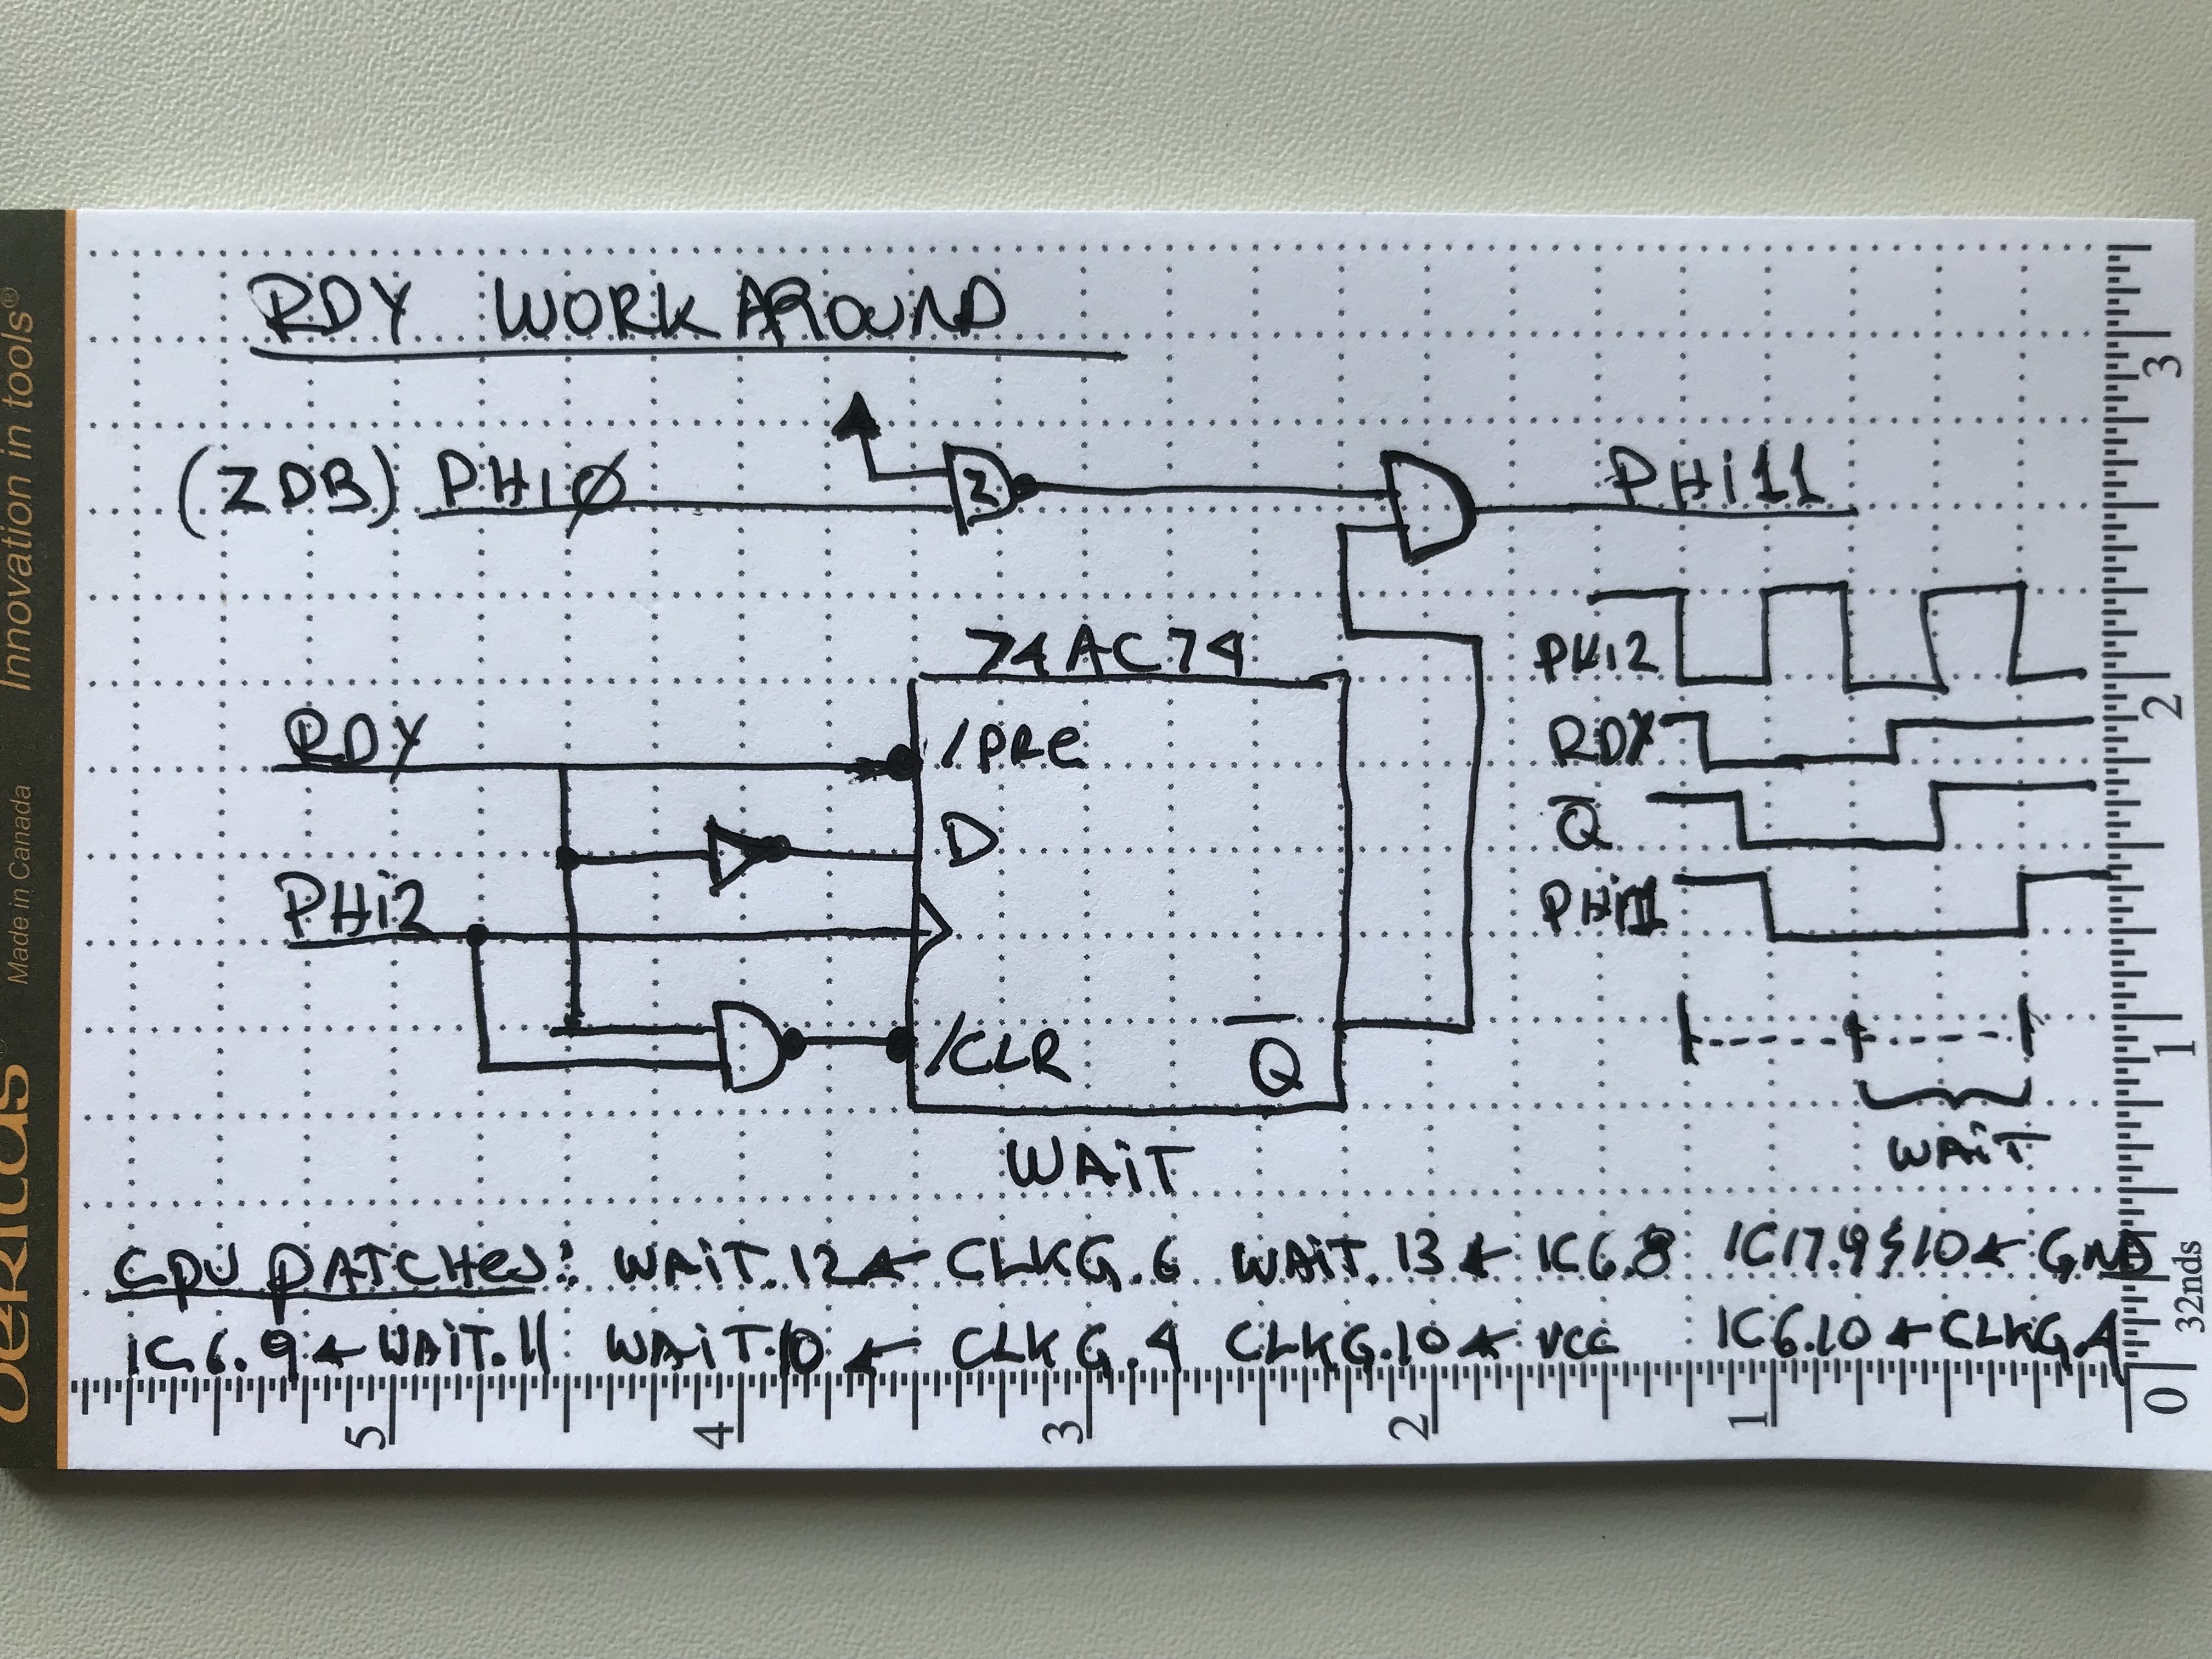 RDY WORKAROUND
(ZDB) PHIØ
2
PHi11
74AC74
RDY
/PRE
D
PHi2
/CLR
Q
WAiT
PHi2
RDY
Q
PHi11
WAiT
CPU PATCHES: WAiT.12 ← CLKG.6 WAiT.13 ← IC6.8 IC17.9 & 10 ← GND
IC6.9 ← WAiT.11 WAiT.10 ← CLKG.4 CLKG.10 ← VCC IC6.10 ← CLKG.4
Innovation in tools®
Made in Canada
3
2
1
0
32nds
5 4 3 2 1